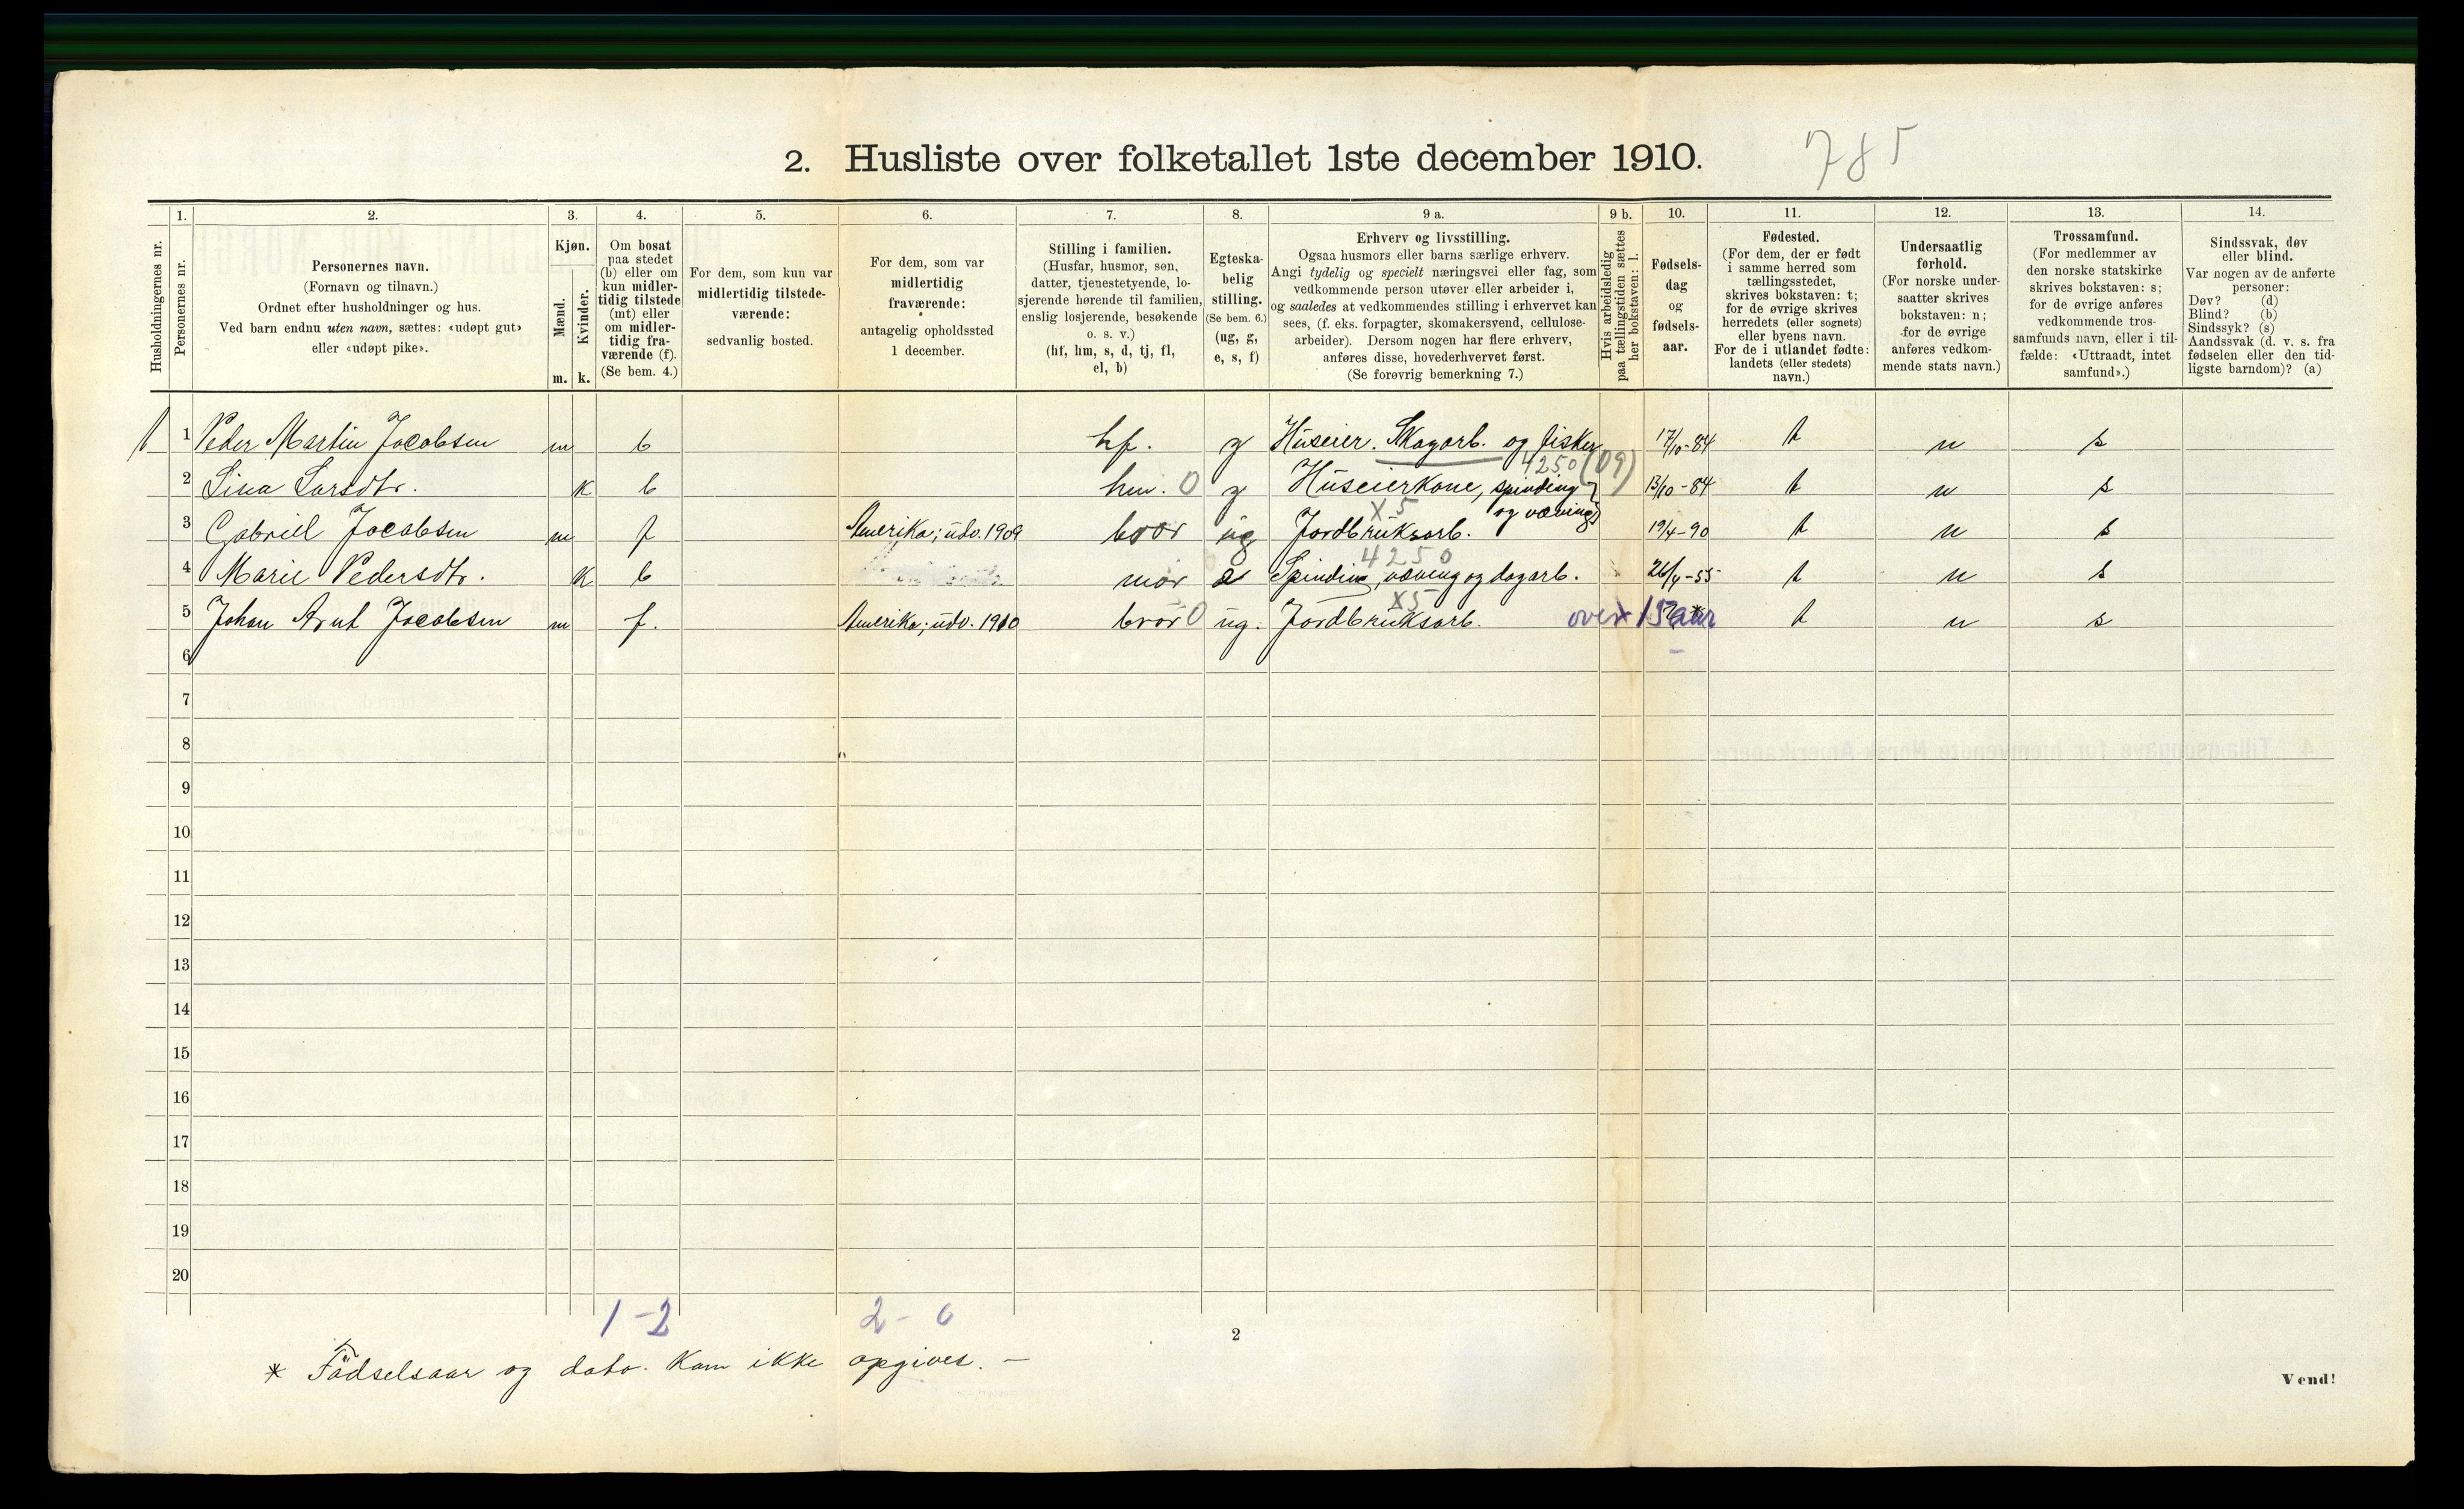 2. Husliste over folketallet 1ste december 1910. 785
1. 2. 3. 4. 5. 6. 7. 8. 9 a. 9 b. 10. 11. 12. 13. 14.
Husholdningernes nr.
Personernes nr.
Personernes navn.
(Fornavn og tilnavn.)
Ordnet efter husholdninger og hus.
Ved barn endnu uten navn, sættes: «udøpt gut»
eller «udøpt pike».
Kjøn.
Mænd.
Kvinder.
m. k.
Om bosat
paa stedet
(b) eller om
kun midler-
tidig tilstede
(mt) eller
om midler-
tidig fra-
værende (f).
(Se bem. 4.)
For dem, som kun var
midlertidig tilstede-
værende:
sedvanlig bosted.
For dem, som var
midlertidig
fraværende:
antagelig opholdssted
1 december.
Stilling i familien.
(Husfar, husmor, søn,
datter, tjenestetyende, lo-
sjerende hørende til familien,
enslig losjerende, besøkende
o. s. v.)
(hf, hm, s, d, tj, fl,
el, b)
Egteska-
belig
stilling.
(Se bem. 6.)
(ug, g,
e, s, f)
Erhverv og livsstilling.
Ogsaa husmors eller barns særlige erhverv.
Angi tydelig og specielt næringsvei eller fag, som
vedkommende person utøver eller arbeider i,
og saaledes at vedkommendes stilling i erhvervet kan
sees, (f. eks. forpagter, skomakersvend, cellulose-
arbeider). Dersom nogen har flere erhverv,
anføres disse, hovederhvervet først.
(Se forøvrig bemerkning 7.)
Hvis arbeidsledig
paa tællingstiden sættes
her bokstaven: l.
Fødsels-
dag
og
fødsels-
aar.
Fødested.
(For dem, der er født
i samme herred som
tællingsstedet,
skrives bokstaven: t;
for de øvrige skrives
herredets (eller sognets)
eller byens navn.
For de i utlandet fødte:
landets (eller stedets)
navn.)
Undersaatlig
forhold.
(For norske under-
saatter skrives
bokstaven: n;
for de øvrige
anføres vedkom-
mende stats navn.)
Trossamfund.
(For medlemmer av
den norske statskirke
skrives bokstaven: s;
for de øvrige anføres
vedkommende tros-
samfunds navn, eller i til-
fælde: «Uttraadt, intet
samfund».)
Sindssvak, døv
eller blind.
Var nogen av de anførte
personer:
Døv? (d)
Blind? (b)
Sindssyk? (s)
Aandssvak (d. v. s. fra
fødselen eller den tid-
ligste barndom)? (a)
1 1 Peder Martin Jacobsen m b hf. g Huseier. Skogarb. og fisker 17/10-84 t n s
4250 (09)
2 Lina Larsdtr. k b hm. 0 g Huseierkone, spinding 13/10-84 t n s
og væving
X5
3 Gabriel Jacobsen m f Amerika; udv. 1909 bror ug Jordbruksarb. 19/4-90 t n s
4250
4 Marie Pedersdtr. k b mor e Spinding, væving og dagarb. 26/4-55 t n s
X5
5 Johan Arnt Jacobsen m f. Amerika; udv. 1910 bror 0 ug. Jordbruksarb. over 15 aar t n s
6
7
8
9
10
11
12
13
14
15
16
17
18
19
20
1-2 2-0
2
* Fødselsaar og dato kan ikke opgives. —
Vend!